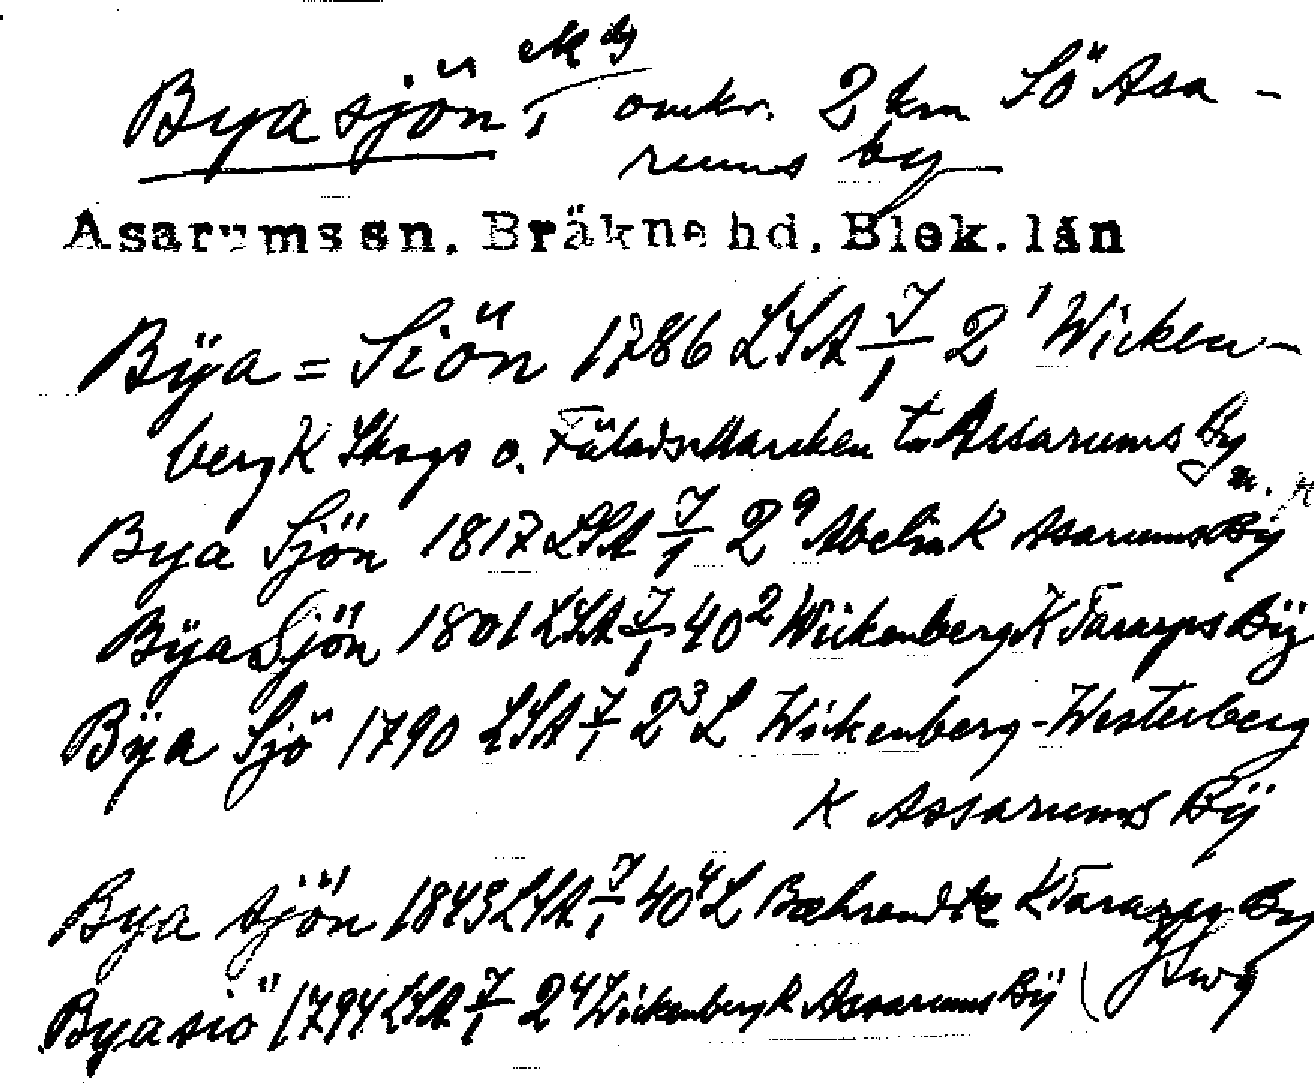 Byasjön, omkr. 2 km SÖ Asa-
rums by
Asarums sn. Bräkne hd. Blek. län
Bÿa = Siön 1786 LSA 7/1 2¹ Wicken-
berg K Skogs o. Fäladsmarken t. Assarums By
Bya Sjön 1817 LSA 7/1 2⁹ Abelin K Asarums By
Bÿa Sjön 1801 LSA 7/1 40² Wickenberg K Tararps Bÿ
Bÿa Sjö 1790 LSA 7/1 2³ L Wickenberg-Westerberg
K Assarums Bÿ
Bya sjön 1843 LSA 7/1 40⁴ L K Tararps By
Byasiö 1794 LSA 7/1 2⁴ Wickenberg K Assarums Bÿ